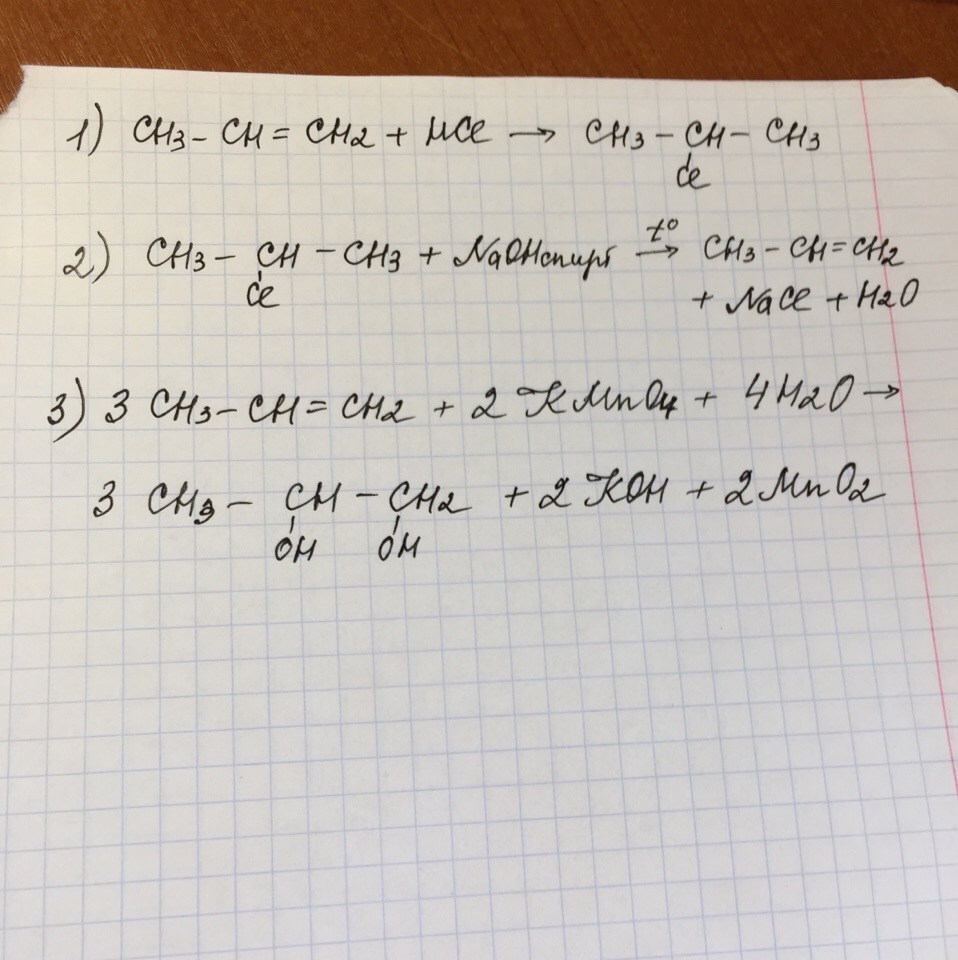 1) CH3 - CH = CH2 + HCl → CH3 - CH - CH3
Cl
2) CH3 - CH - CH3 + NaOHспирт t° → CH3 - CH = CH2
Cl
+ NaCl + H2O
3) 3 CH3 - CH = CH2 + 2 KMnO4 + 4H2O →
3 CH3 - CH - CH2 + 2 KOH + 2 MnO2
OH OH